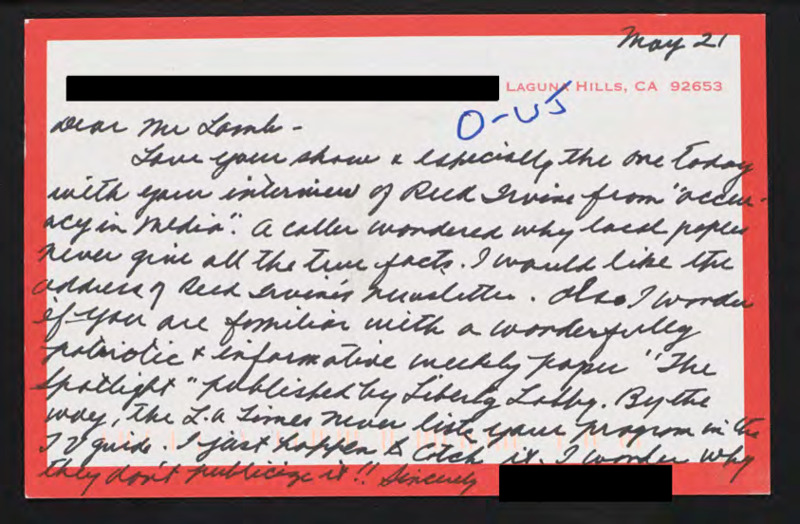 May 21
LAGUNA HILLS, CA 92653
O-US
Dear Mr Lamb -
Love your show & especially the one today
with your interview of Reed Irvine from "accur-
acy in media". A caller wondered why local papers
never give all the true facts. I would like the
address of Reed Irvine's newsletter. Also I wonder
if you are familiar with a wonderfully
patriotic & informative weekly paper "The
Spotlight" published by Liberty Lobby. By the
way, the L.A Times never lists your program in the
TV guide. I just happen to catch it. I wonder why
they don't publicize it!! Sincerely